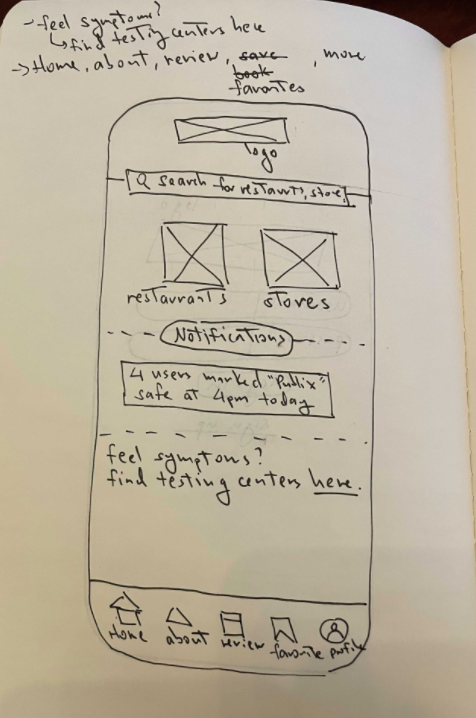 - feel symptoms?
↳ find testing centers here
→ Home, about, review, save, more
book
favorites
logo
search for restaurants, store,
restaurants
stores
Notifications
4 users marked "Publix"
safe at 4pm today
feel symptoms?
find testing centers here.
Home about review favorite profile